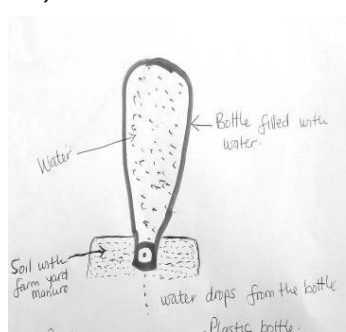 Bottle filled with
water.
Water
Soil with
farm yard
manure
water drops from the bottle
Plastic bottle.